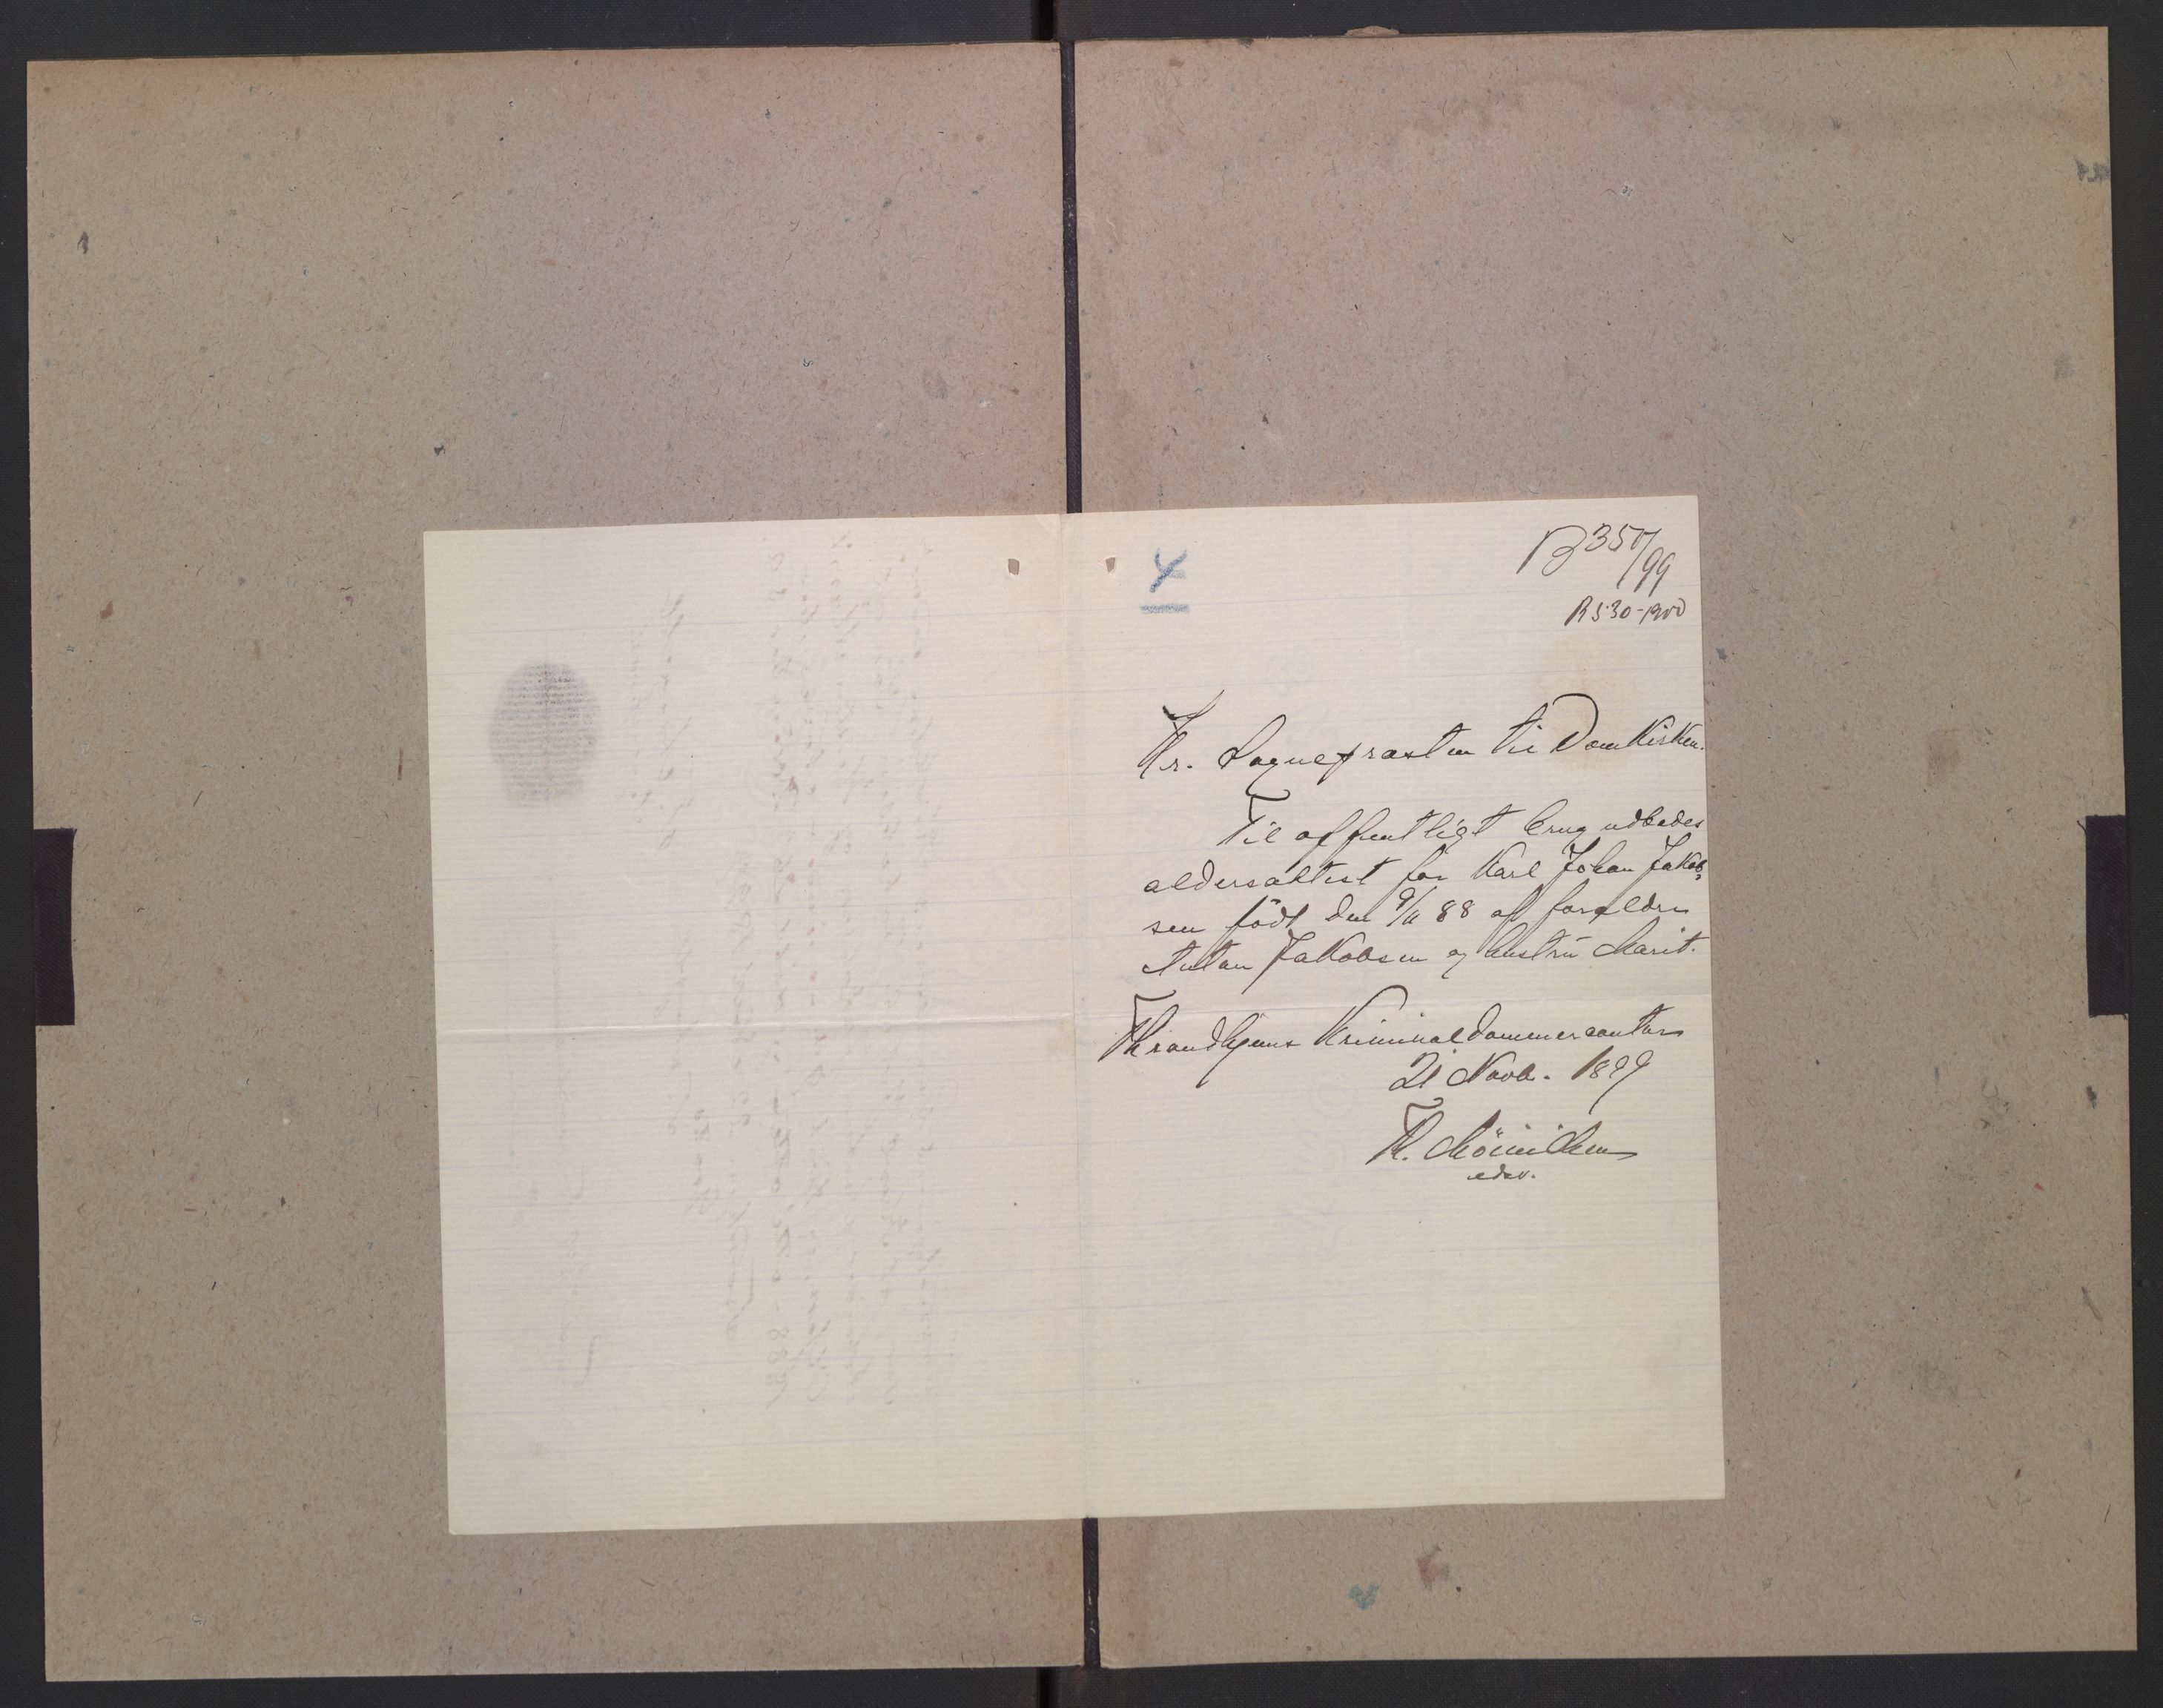 4
B 357/99
R 530-1900
Hr. Sognepræsten til Domkirken.
Til offentligt brug udbedes
aldersattest for Karl Johan Jakob-
sen født den 9/11 88 af forældre
Anton Jakobsen og hustru Marit.
Throndhjems Kriminaldommercontor
21 Novb. 1899
Th. Mönnichen
edsv.